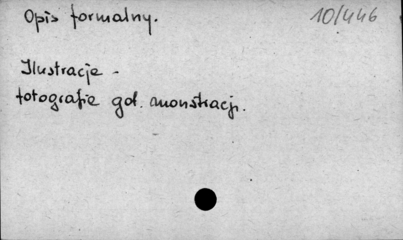 Opis formalny.
10/446
Ilustracje -
fotografie got. monstracji.